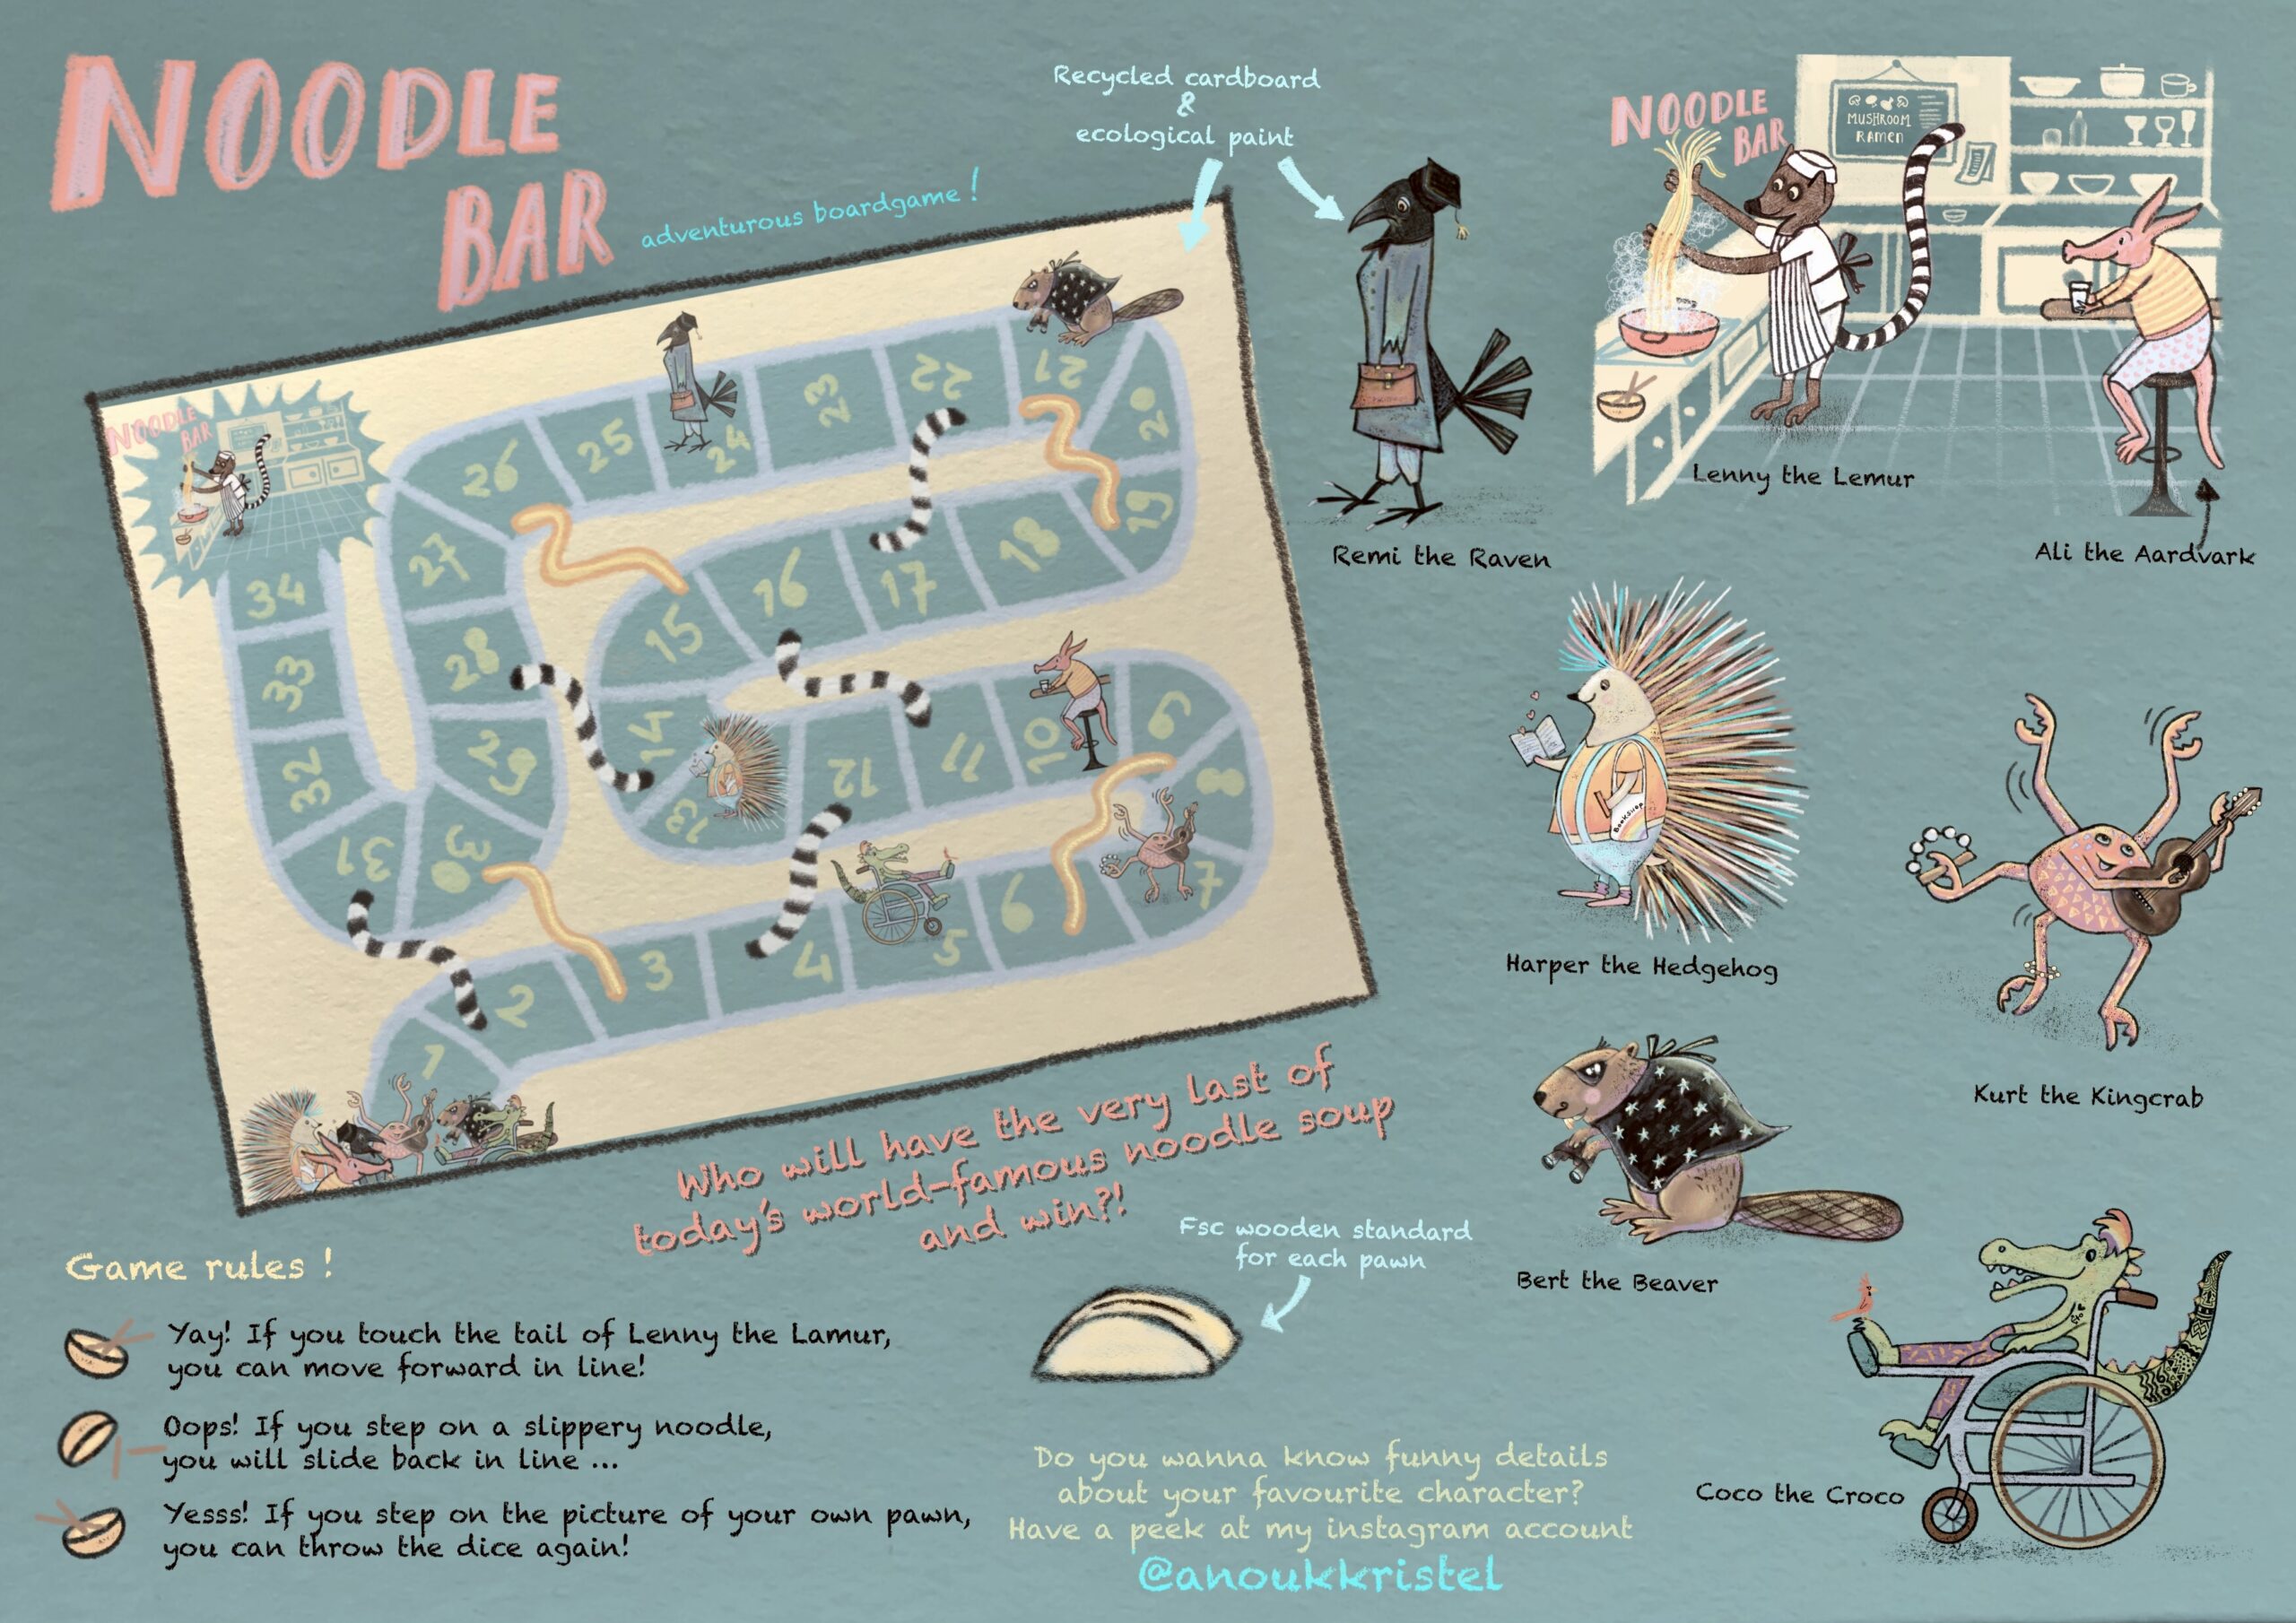 NOODLE
BAR
adventurous boardgame!
Recycled cardboard
&
ecological paint
NOODLE
BAR
MUSHROOM
RAMEN
Lenny the Lemur
Ali the Aardvark
Remi the Raven
NOODLE
BAR
26
25
24
23
22
21
20
19
18
17
16
15
27
28
29
30
31
32
33
34
14
13
12
11
10
9
8
7
6
5
4
3
2
1
Bookshop
Harper the Hedgehog
Kurt the Kingcrab
Bert the Beaver
Coco the Croco
Who will have the very last of
today's world-famous noodle soup
and win?!
Fsc wooden standard
for each pawn
Game rules !
Yay! If you touch the tail of Lenny the Lamur,
you can move forward in line!
Oops! If you step on a slippery noodle,
you will slide back in line ...
Yesss! If you step on the picture of your own pawn,
you can throw the dice again!
Do you wanna know funny details
about your favourite character?
Have a peek at my instagram account
@anoukkristel